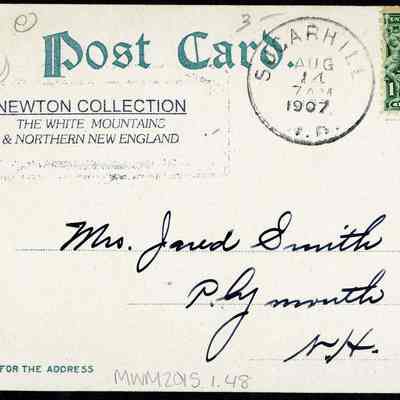 Post Card.
3
SUGARHILL
AUG
14
7AM
1907
NEWTON COLLECTION
THE WHITE MOUNTAINS
& NORTHERN NEW ENGLAND
1
Mrs. Jared Smith
Plymouth
N.H.
FOR THE ADDRESS
MWM2015.1.48